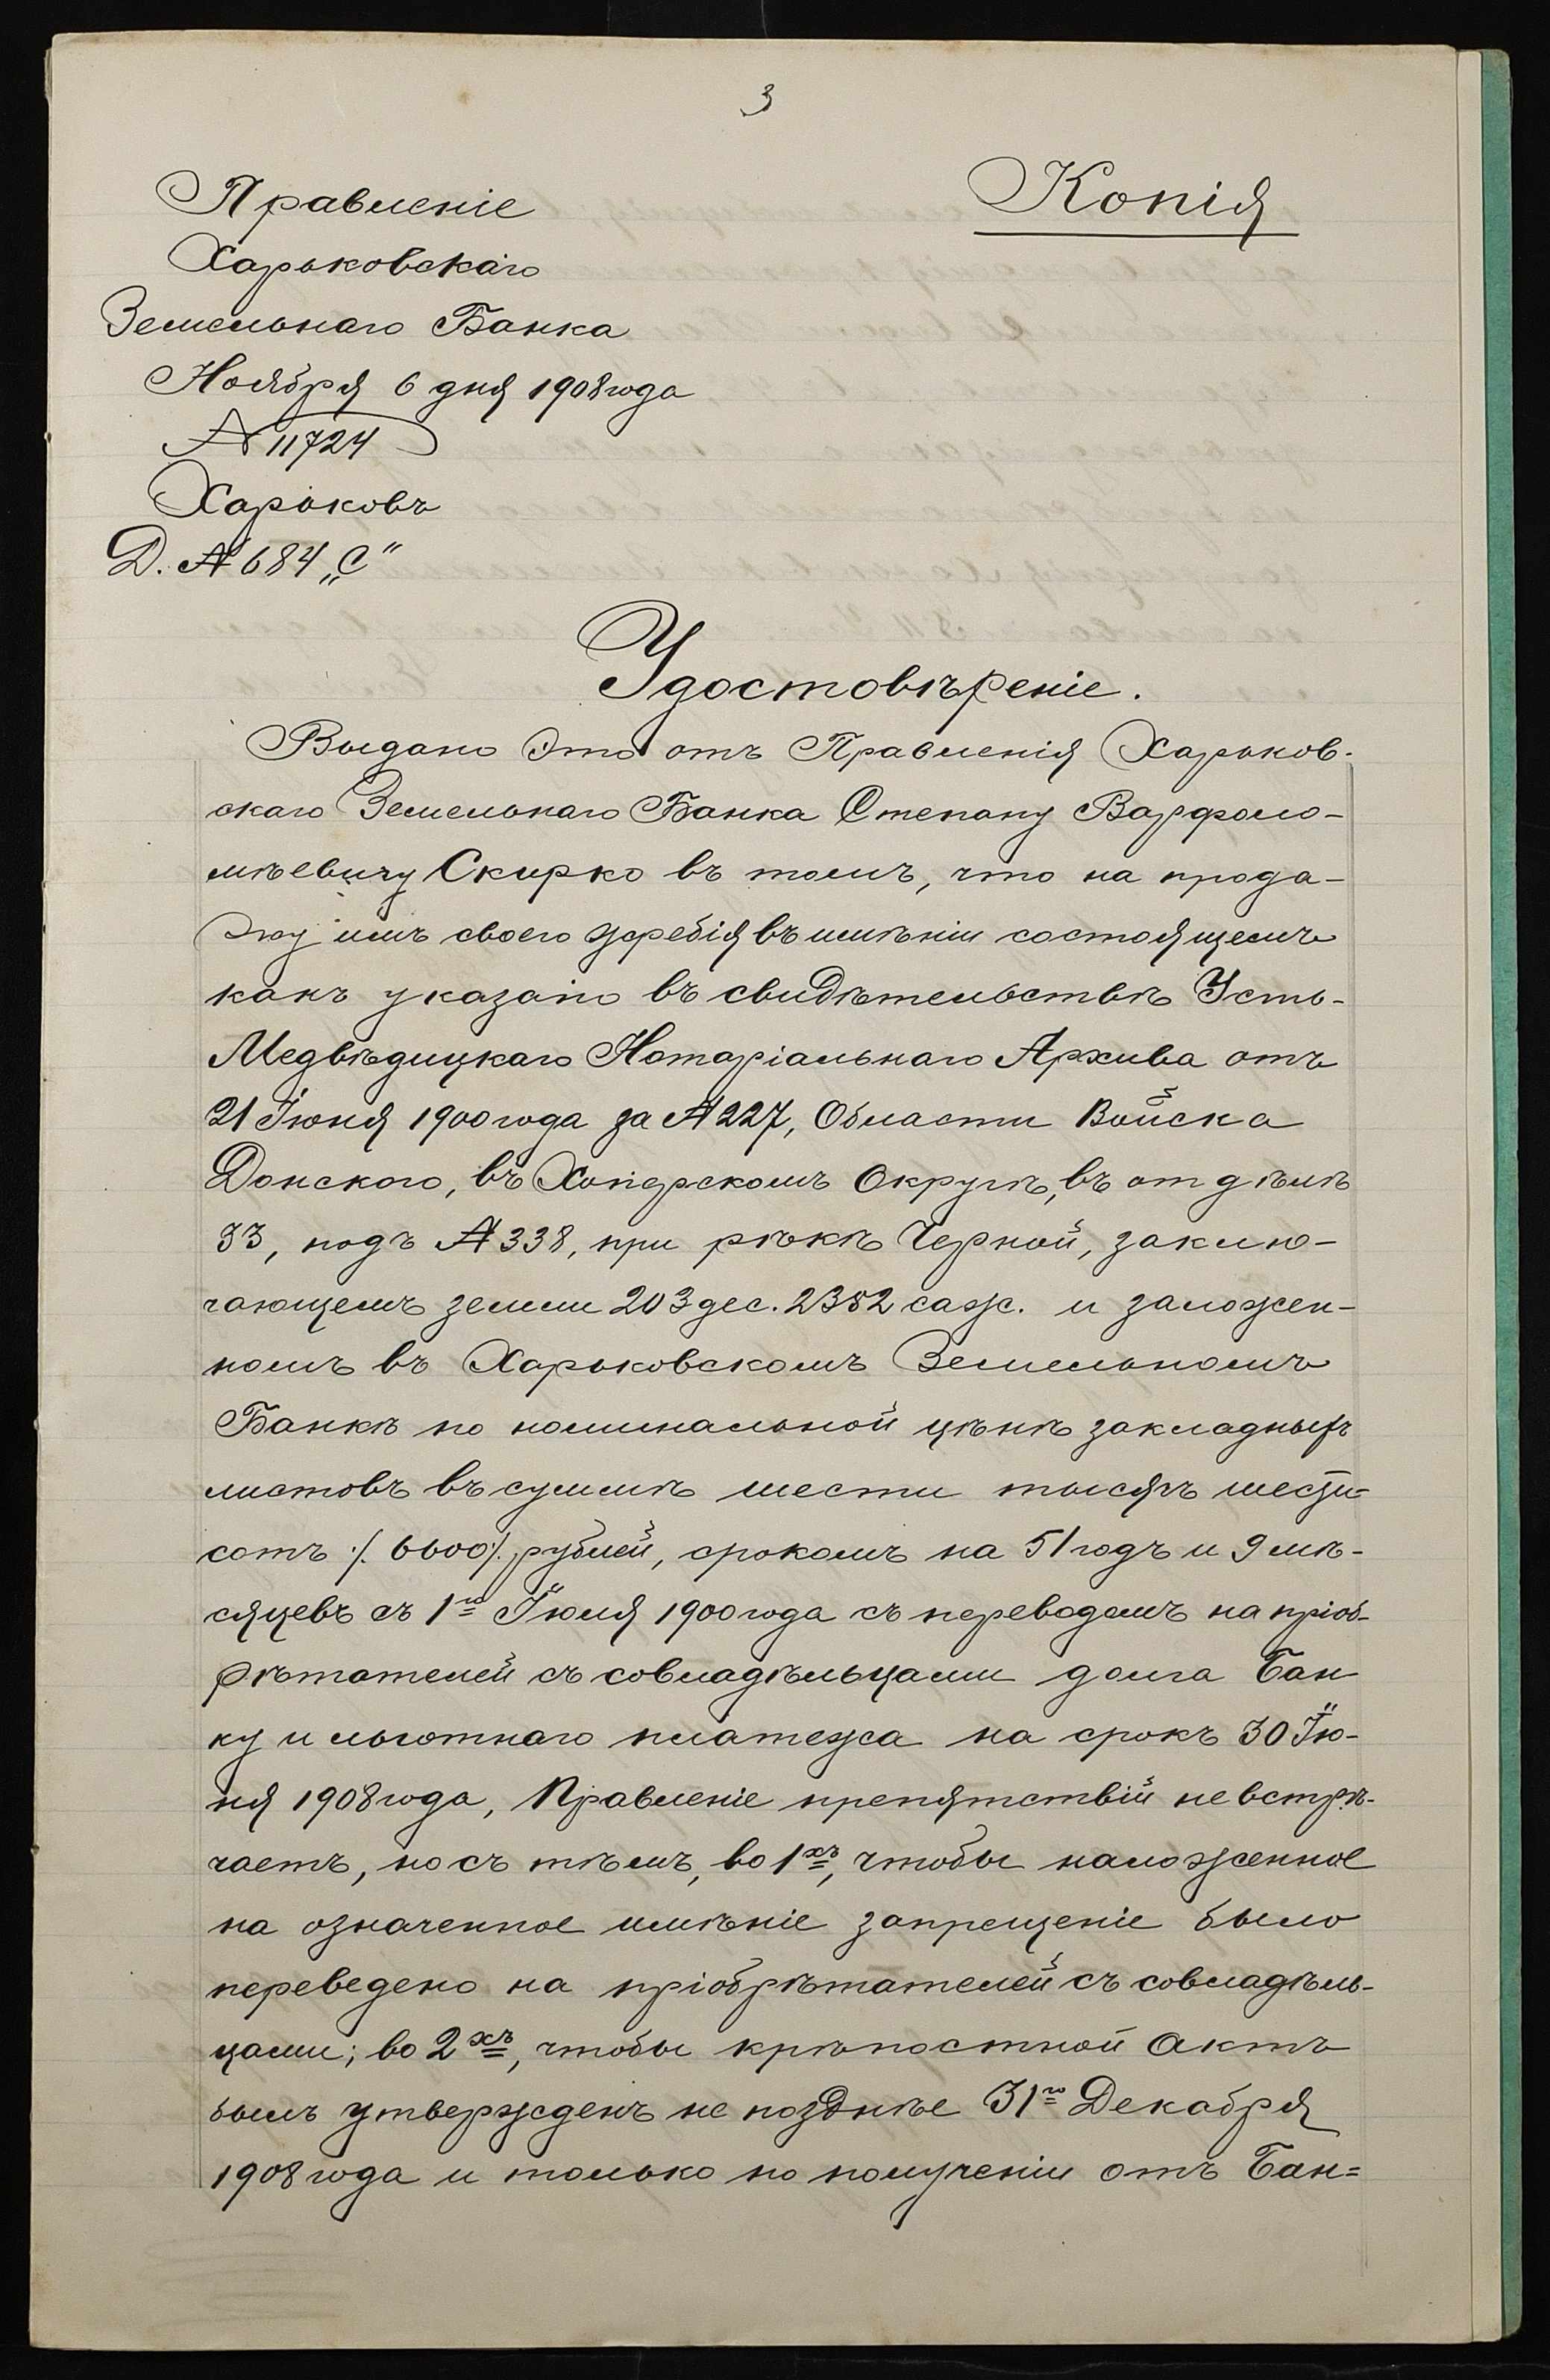 3
Копія
Правленіе
Харьковскаго
Земельнаго Банка
Ноября 6 дня 1908 года
№ 11724
Харьковъ
Д. № 684 „С“
Удостовѣреніе.
Выдано это отъ Правленія Харьков-
скаго Земельнаго Банка Степану Варфоло-
мѣевичу Скирко въ томъ, что на прода-
жу имъ своего жребія въ имѣніи состоящемъ
какъ указано въ свидѣтельствѣ Усть-
Медвѣдицкаго Нотаріальнаго Архива отъ
21 Іюня 1900 года за № 227, Области Войска
Донского, въ Хоперскомъ Округѣ, въ отдѣлѣ
33, подъ № 338, при рѣкѣ Черной, заклю-
чающемъ земли 203 дес. 2352 саж. и заложен-
номъ въ Харьковскомъ Земельномъ
Банкѣ по номинальной цѣнѣ закладныхъ
листовъ въ суммѣ шести тысячъ шести-
сотъ ./. 6600 ./. рублей, срокомъ на 51 годъ и 9 мѣ-
сяцевъ съ 1го Іюля 1900 года съ переводомъ на пріоб-
рѣтателей съ совладѣльцами долга Бан
ку и льготнаго платежа на срокъ 30 Ію-
ня 1908 года, Правленіе препятствій не встрѣ-
чаетъ, но съ тѣмъ, во 1хъ, чтобы наложенное
на означенное имѣніе запрещеніе было
переведено на пріобрѣтателей съ совладѣль-
цами; во 2хъ, чтобы крѣпостной актъ
былъ утвержденъ не позднѣе 31го Декабря
1908 года и только по полученіи отъ Бан=